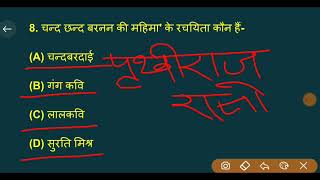 8. चन्द छन्द बरनन की महिमा' के रचयिता कौन हैं-
(A) चन्दबरदाई
(B) गंग कवि
(C) लालकवि
(D) सुरति मिश्र
पृथ्वीराज
रासो